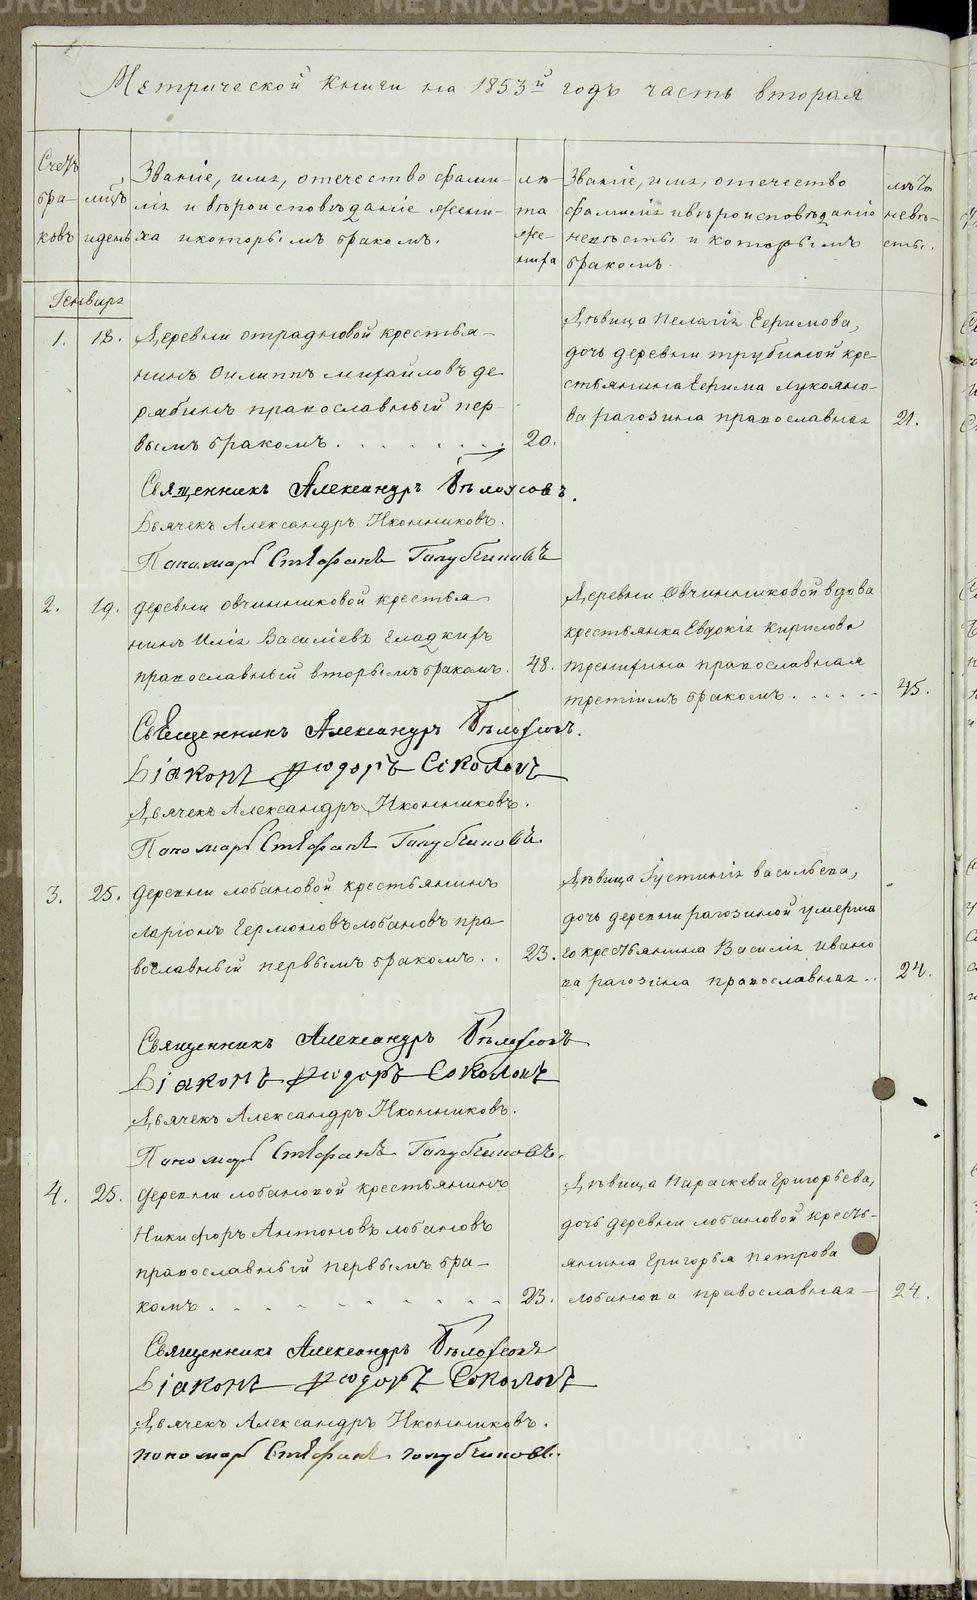 Метрической книги на 1853й годъ часть вторая
Счетъ браковъ
мѣцъ и день
Званіе, имя, отечество фами-
лія и вѣроисповѣданіе жени-
ха и которымъ бракомъ.
лѣ-
та
же-
ниха
Званіе, имя, отечество
фамилія и вѣроисповѣданіе
невѣсты и которымъ
бракомъ.
лѣта
невѣ-
сты.
Генваря
1. 18. Деревни отрадновой крестья-
нинъ Филиппъ михайловъ де
рябинъ православный пер-
вымъ бракомъ. 20.
Дѣвица Пелагія Ефимова,
дочь деревни трубиной кре
стьянина Ефима лукояно-
ва рагозина православная 21.
Священникъ Александръ Бѣлоусовъ.
Дьячекъ Александръ Иконниковъ.
Пономарь Стефанъ Голубчиковъ
2. 19. деревни овчинниковой крестья
нинъ Илія Василіевъ гладкихъ
православный вторымъ бракомъ. 48.
Деревни Овчинниковой вдова
крестьянка Евдокія Кирилова
православная
третіимъ бракомъ. 45.
Священникъ Александръ Бѣлоусовъ.
Діаконъ Ѳеодоръ Соколовъ
Дьячекъ Александръ Иконниковъ.
Пономарь Стефанъ Голубчиковъ.
3. 25. деревни лобановой крестьянинъ
ларіонъ Гермоновъ лобановъ пра
вославный первымъ бракомъ.. 23.
Дѣвица Іустинія васильева,
дочь деревни рагозиной умерша
го крестьянина Василія Ивано
ва рагозина православная.. 24.
Священникъ Александръ Бѣлоусовъ
Діаконъ Ѳеодоръ Соколовъ
Дьячекъ Александръ Иконниковъ.
Пономарь Стефанъ Голубчиковъ.
4. 25. деревни лобановой крестьянинъ
Никифоръ Антоновъ лобановъ
православный первымъ бра-
комъ. 23.
Дѣвица Параскева Григорьева,
дочь деревни лобановой кресть-
янина Григорья петрова
лобанова православная 24.
Священникъ Александръ Бѣлоусовъ
Діаконъ Ѳеодоръ Соколовъ
Дьячекъ Александръ Иконниковъ.
пономарь Стефанъ голубчиковъ.
METRIKI.GASO-URAL.RU